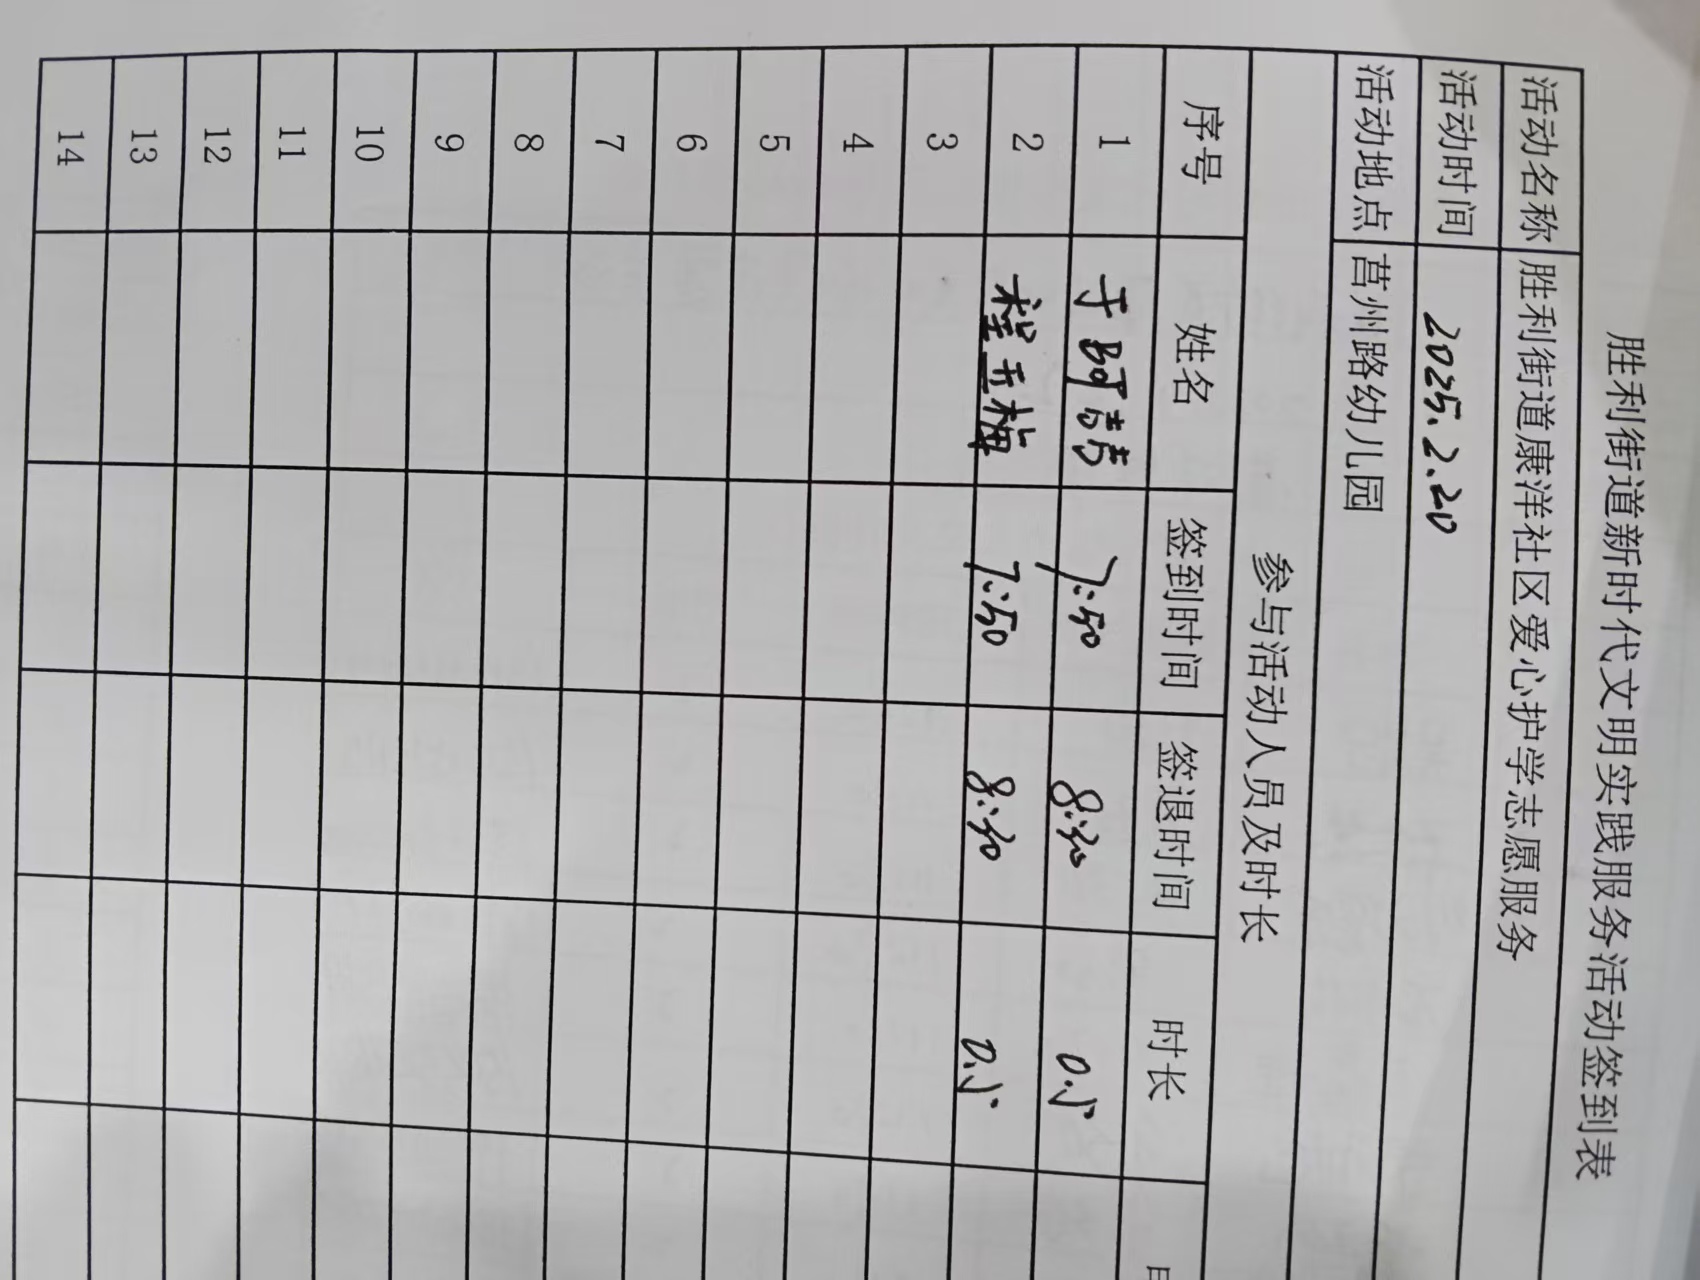 胜利街道新时代文明实践服务活动签到表
活动名称 胜利街道康洋社区爱心护学志愿服务
活动时间 2025.2.20
活动地点 莒州路幼儿园
参与活动人员及时长
序号 姓名 签到时间 签退时间 时长
1 于阿涛 7:50 8:30 0.5
2 程玉梅 7:50 8:30 0.5
3
4
5
6
7
8
9
10
11
12
13
14